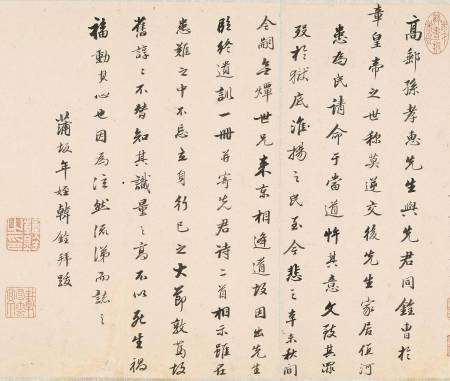 高郵孫孝惠先生與先君同銓曹於
章皇帝之世稱莫逆交後先生家居值河
患為民請命于當道忤其意文致其罪
歿於獄底淮揚之民至今悲之辛未秋間
令嗣无燀世兄來京相逢道故因出先生
臨終遺訓一冊并寄先君詩二首相示雖在
患難之中不忘立身行己之大節敦篤故
舊諄諄不替知其識量之高不以死生禍
福動其心也因為泫然流涕而誌之
蒲坂年姪韓銓拜跋